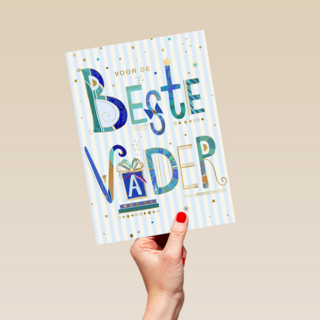 VOOR DE
BEStE
VADER